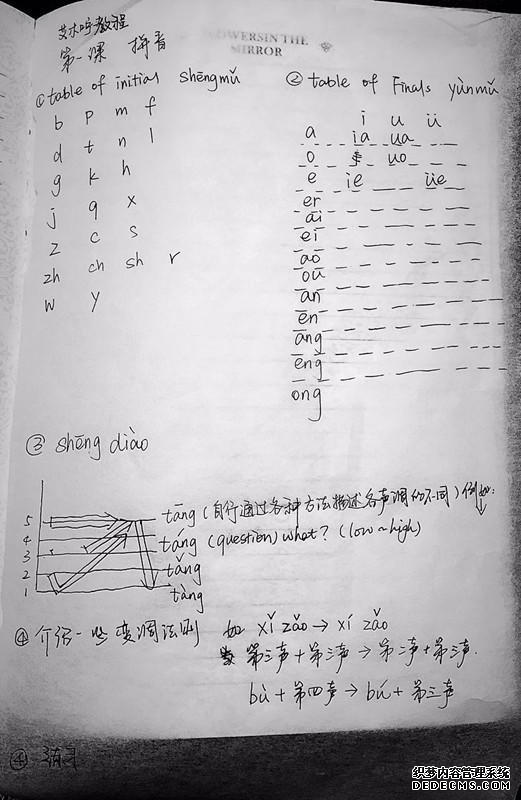 艾木宁教程
第一课 拼音
FLOWERS IN THE
MIRROR
① table of initial shēngmǔ
b p m f
d t n l
g k h
j q x
z c s
zh ch sh r
w y
② table of Finals yùnmǔ
i u ü
a ia ua
o uo
e ie üe
er
ai
ei
ao
ou
an
en
ang
eng
ong
③ shēng diào
5
4
3
2
1
tāng (自行通过各种方法描述各声调的不同) 例如:
táng (question) what? (low~high)
tǎng
tàng
④ 介绍一些变调法则 如 xǐ zǎo → xí zǎo
第三声 + 第三声 → 第二声 + 第三声.
bù + 第四声 → bú + 第三声
④ 练习
织梦内容管理系统
DEDECMS.COM